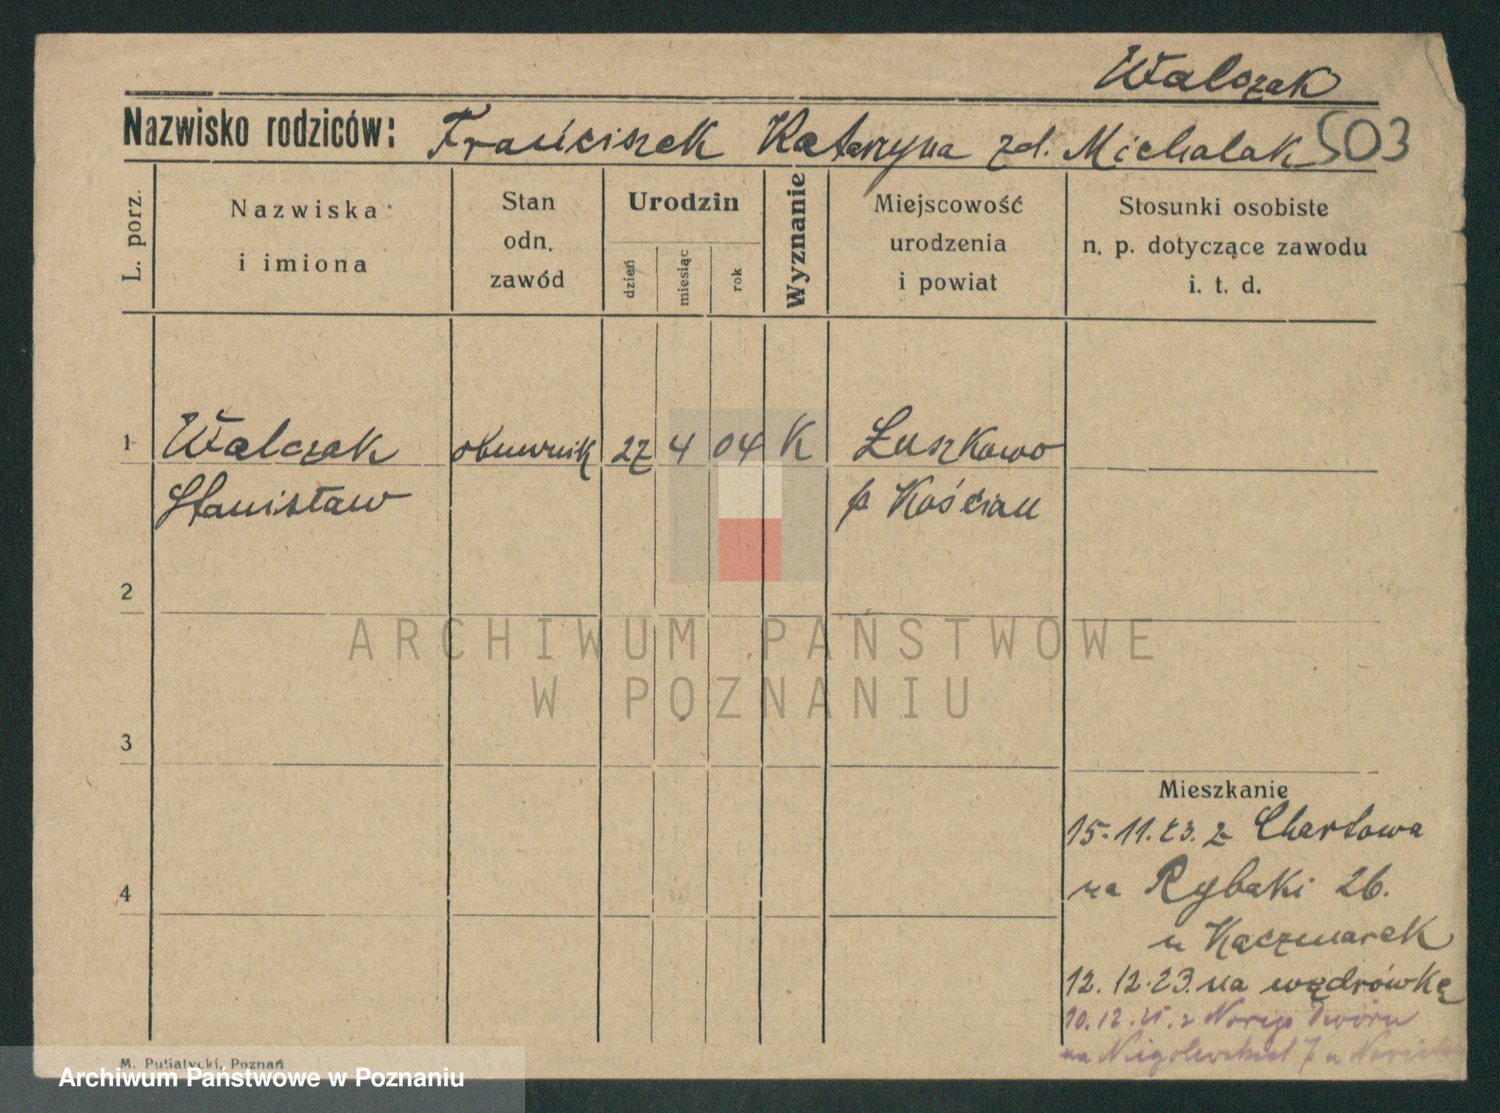 Walczak
Nazwisko rodziców: Franciszek Katarzyna zd. Michalak 503
L. porz.
Nazwiska i imiona
Stan odn. zawód
Urodzin
dzień miesiąc rok
Wyznanie
Miejscowość urodzenia i powiat
Stosunki osobiste n. p. dotyczące zawodu i. t. d.
1 Walczak obuwnik 27 4 04 K Łuszkowo
Stanisław p Kościan
2
ARCHIWUM PAŃSTWOWE
W POZNANIU
3
Mieszkanie
15.11.23. z Chartowa
4
na Rybaki 26.
u Kaczmarek
12.12.23. na wędrówkę
10.12. z Dworu
na 7 u
M. Putiatycki, Poznań
Archiwum Państwowe w Poznaniu